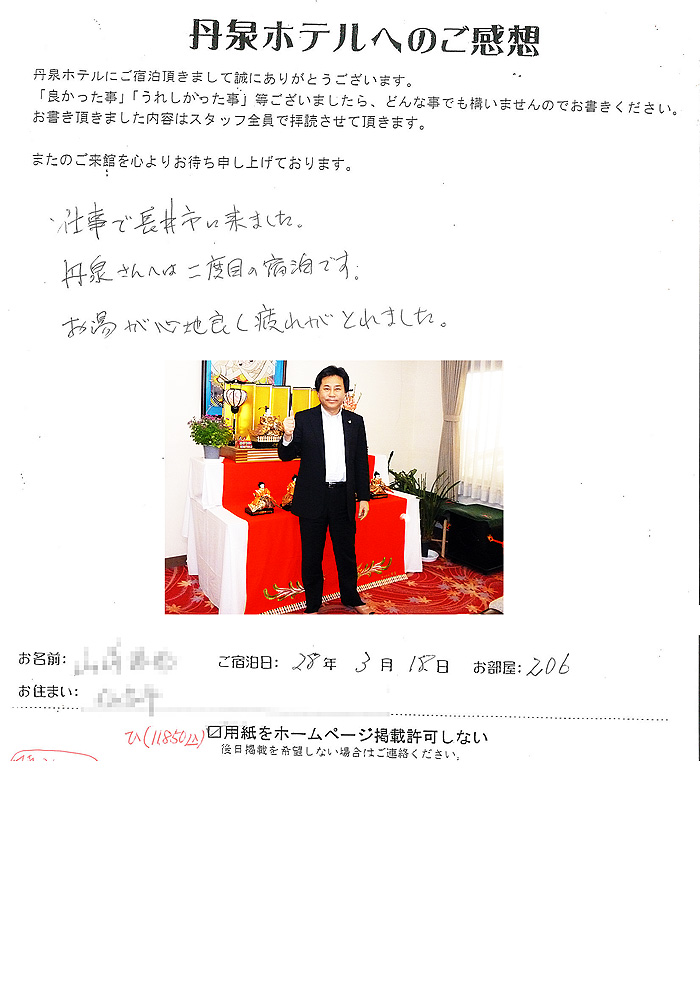 丹泉ホテルへのご感想
丹泉ホテルにご宿泊頂きまして誠にありがとうございます。
「良かった事」「うれしかった事」等ございましたら、どんな事でも構いませんのでお書きください。
お書き頂きました内容はスタッフ全員で拝読させて頂きます。
またのご来館を心よりお待ち申し上げております。
仕事で長井市に来ました。
丹泉さんへは二度目の宿泊です。
お湯が心地良く疲れがとれました。
お名前: ご宿泊日: 28年 3月 18日 お部屋: 206
お住まい:
ひ(11850) ☑用紙をホームページ掲載許可しない
後日掲載を希望しない場合はご連絡ください。